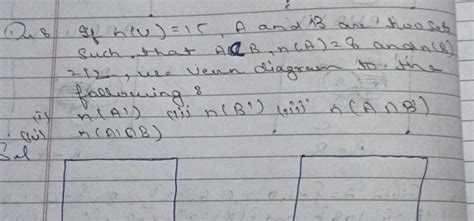 Qu 8 If n(U) = 15, A and B are two sets
such that A⊂B, n(A) = 8 and n(B)
=12, use venn diagram to fine
following :
(i) n(A') (ii) n(B') (iii) n(A∩B)
(iv) n(A'∩B)
Sol